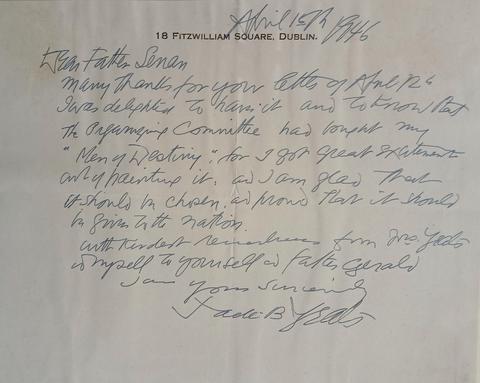 April 15th 1946
18 Fitzwilliam Square, Dublin.
Dear Father Senan
Many thanks for your letter of April 12th
I was delighted to have it and to know that
the Organizing Committee had bought my
"Men of Destiny", for I got great excitement
out of painting it. and I am glad that
it should be chosen, and proud that it should
be given to the nation.
with kindest remembrances from Mrs. Yeats
and myself to yourself and Father Gerald
I am yours sincerely
Jack B Yeats